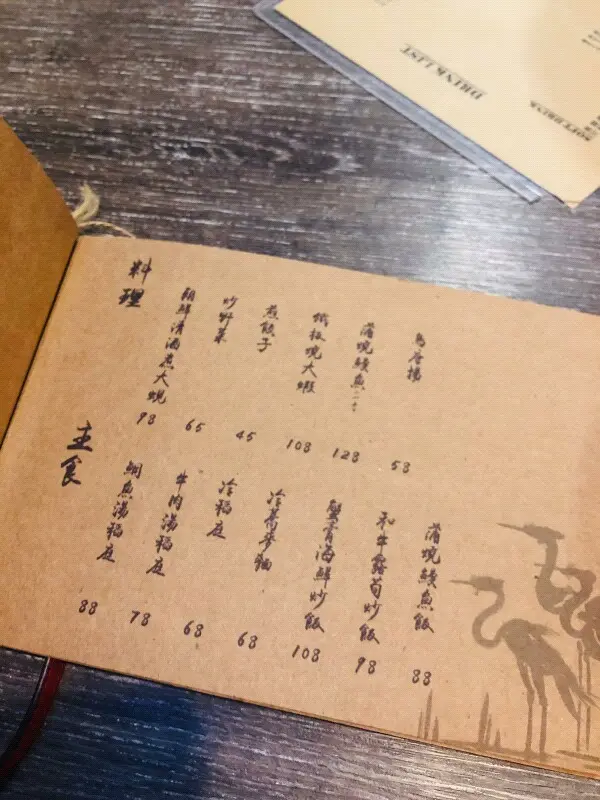 料理
朝鮮清酒煮大蜆
98
炒野菜
65
煮餃子
45
鐵板燒大蝦
108
蒲燒鰻魚
128
58
主食
鯛魚湯稻庭
88
牛肉湯稻庭
78
冷稻庭
68
冷蕎麥麵
68
蟹膏海鮮炒飯
108
和牛露筍炒飯
98
蒲燒鰻魚飯
88
DRINK LIST
SOFT DRINK